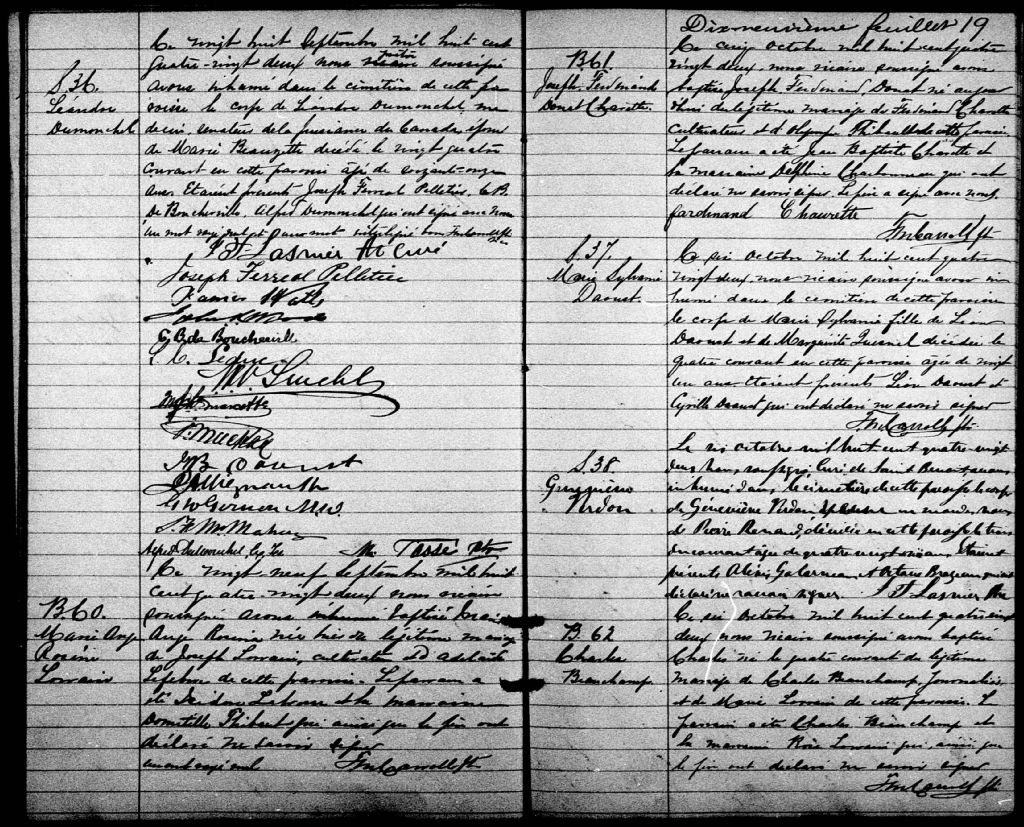 S36.
Léandre
Dumouchel
Ce vingt huit Septembre mil huit cent
quatre-vingt deux nous soussigné
avons inhumé dans le cimetière de cette pa
roisse le corps de Léandre Dumouchel me
decin, senateur de la puissance du Canada, époux
de Marie Beaugette décédé le vingt quatre
courant en cette paroisse âgé de soixante-onze
ans. Etaient présents Joseph Ferreol Pelletier, C. B.
De Boucherville, Alfred Dumouchel qui ont signé avec nous
un mot rayé nul et
F. Lasnier Ptre Curé
Joseph Ferreol Pelletier
James Watts
C. B. de Boucherville
L. C. Leduc
J. B. Daoust
G. W. Gernon M.D.
T. F. McMahon
Alfred Dumouchel
M. Tassé Ptre
B.60.
Marie Ange
Rosina
Lorrain
Ce vingt neuf Septembre mil huit
cent quatre-vingt deux nous vicaire
soussigné avons inhumé baptisé Marie
Ange Rosina née hier de légitime mariage
de Joseph Lorrain, cultivateur et d'Adelaïde
Lefebvre de cette paroisse. Le parrain a
été Isidore et la marraine
Domitille Thibert qui ainsi que le père ont
déclaré ne savoir signer
un mot rayé nul F. McCarroll ptr
Dixneuvième feuillet 19
B61.
Joseph Ferdinand
Donat Charette
Ce cinq Octobre mil huit cent quatre
vingt deux, nous vicaire soussigné avons
baptisé Joseph Ferdinand Donat né aujour
d'hui de légitime mariage de Ferdinand Charette
cultivateur et d'Olympe Thibault de cette paroisse
Le parrain a été Jean Baptiste Charette et
la marraine Delphine Charbonneau qui ont
déclaré ne savoir signer. Le père a signé avec nous.
Fardinand Chaurette
F. McCarroll ptr
S.37.
Marie Sylvanie
Daoust.
Ce six Octobre mil huit cent quatre
vingt deux, nous vicaire soussigné avons in
humé dans le cimetière de cette paroisse
le corps de Marie Sylvanie fille de Léon
Daoust et de Marguerite Quesnel décédée le
quatre courant en cette paroisse âgée de vingt
un ans. Etaient présents Léon Daoust et
Cyrille Daoust qui ont déclaré ne savoir signer
F. McCarroll ptr
S.38.
Geneviève
Verdon.
Le six octobre mil huit cent quatre vingt
deux Nous, soussigné Curé de Saint Benoit, avons
inhumé dans le cimetière de cette paroisse le corps
de Géneviève Verdon,
de Pierre Renaud, décédée en cette paroisse le trois
du courant âgée de quatre vingt ans. Etaient
présents Alexis Galarneau et Octave Brazeau qui ont
déclaré ne savoir signer. F. Lasnier Ptre
B. 62
Charles
Beauchamp.
Ce six Octobre mil huit cent quatre vingt
deux nous vicaire soussigné avons baptisé
Charles né le quatre courant du légitime
mariage de Charles Beauchamp, Journalier
et de Marie Lorrain de cette paroisse. Le
parrain a été Charles Beauchamp et
la marraine Rose Lorrain qui ainsi que
le père ont déclaré ne savoir signer
F. McCarroll ptr